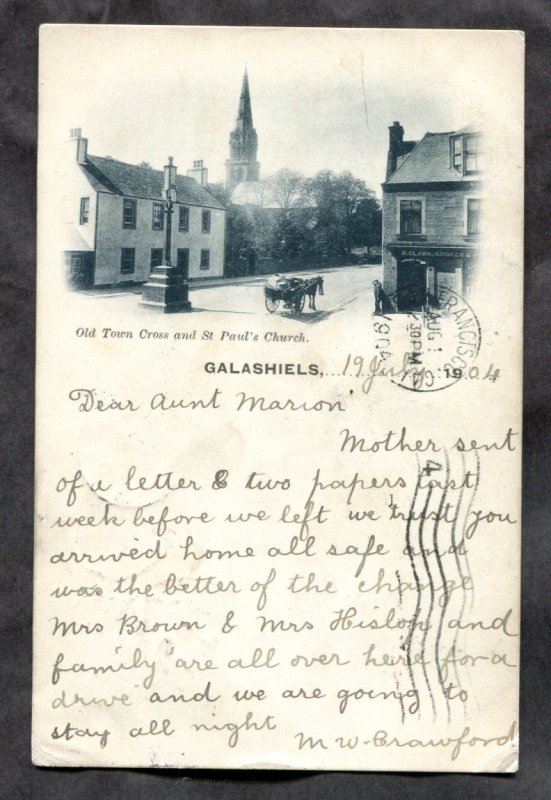 R. CLARK, GROCER &
Old Town Cross and St Paul's Church.
GALASHIELS, 19 July 1904
FRANCISCO
AUG 1
2 30 PM
1904
Dear Aunt Marion
Mother sent
of a letter & two papers last
week before we left we trust you
arrived home all safe and
was the better of the change
Mrs Brown & Mrs Hislop and
family are all over here for a
drive and we are going to
stay all night
M W. Crawford
4